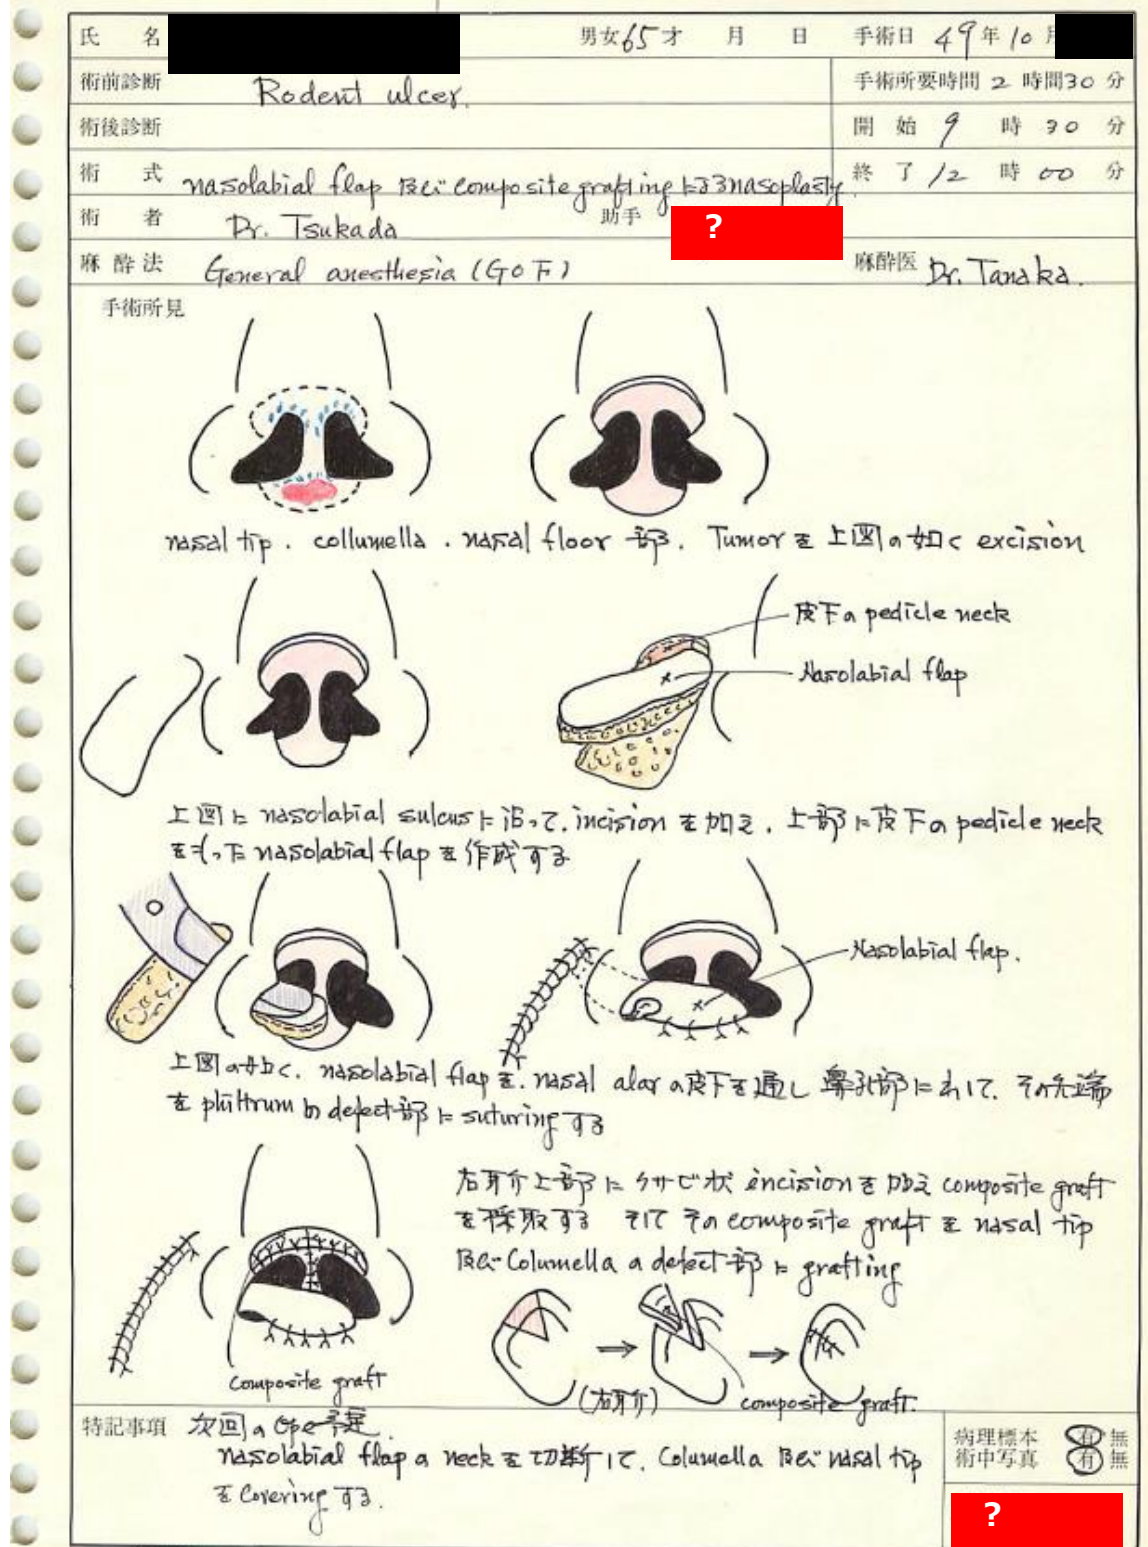 氏 名 男女 65才 月 日 手術日 49年10月
術前診断 Rodent ulcer. 手術所要時間 2 時間30 分
術後診断 開 始 9 時 30 分
術 式 nasolabial flap 及び composite grafting によるnasoplasty. 終 了 12 時 00 分
術 者 Dr. Tsukada 助手 ?
麻酔法 General anesthesia (GOF) 麻酔医 Dr. Tanaka.
手術所見
nasal tip . collumella . nasal floor 部. Tumor を 上図の如く excision
皮下の pedicle neck
Nasolabial flap
上図に nasolabial sulcus に沿って, incision を加え, 上部に皮下の pedicle neck
をもった nasolabial flap を作成する
Nasolabial flap.
上図の如く, nasolabial flap を, nasal alar の皮下を通し 鼻孔部に入れて, その先端
を philtrum の defect部に suturing する
右耳介上部に クサビ状 incision を加え composite graft
を採取する そして その composite graft を nasal tip
及び Columella の defect 部に grafting
composite graft
(右耳介)
composite graft.
特記事項 次回の Ope 予定.
nasolabial flap の neck を切断して, Columella 及び nasal tip
を Covering する.
病理標本 有 無
術中写真 有 無
?